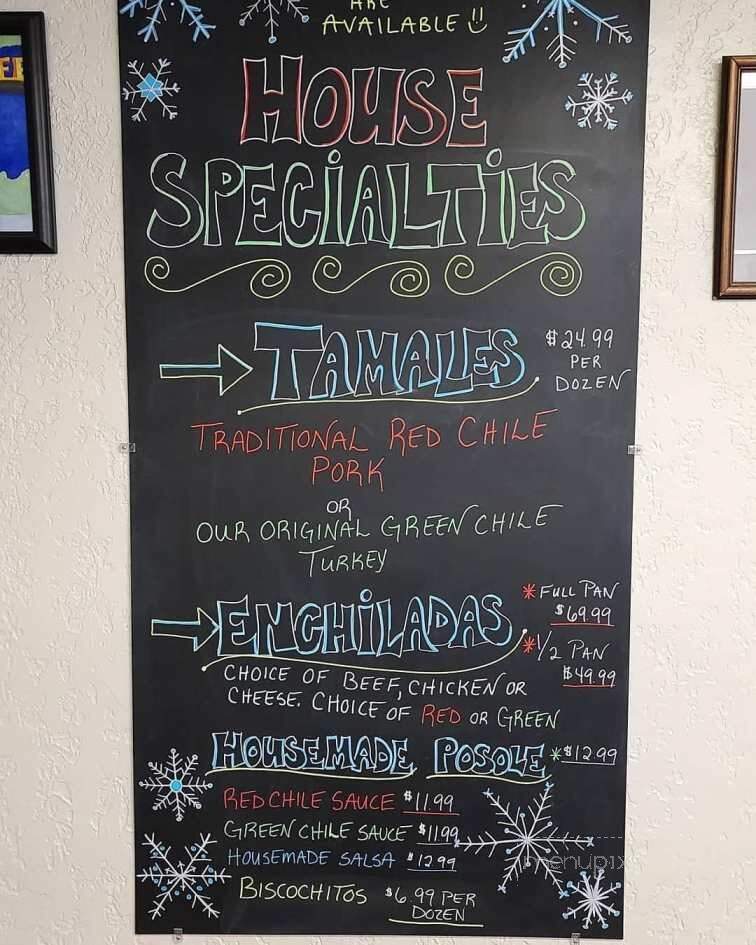 ARE
AVAILABLE !!
HOUSE
SPECIALTIES
TAMALES
$24.99
PER
DOZEN
TRADITIONAL RED CHILE
PORK
OR
OUR ORIGINAL GREEN CHILE
TURKEY
ENCHILADAS
*FULL PAN
$69.99
*1/2 PAN
$49.99
CHOICE OF BEEF, CHICKEN OR
CHEESE. CHOICE OF RED OR GREEN
HOUSEMADE POSOLE *$12.99
RED CHILE SAUCE $11.99
GREEN CHILE SAUCE $11.99
HOUSEMADE SALSA $12.99
BISCOCHITOS $6.99 PER
DOZEN
menupix